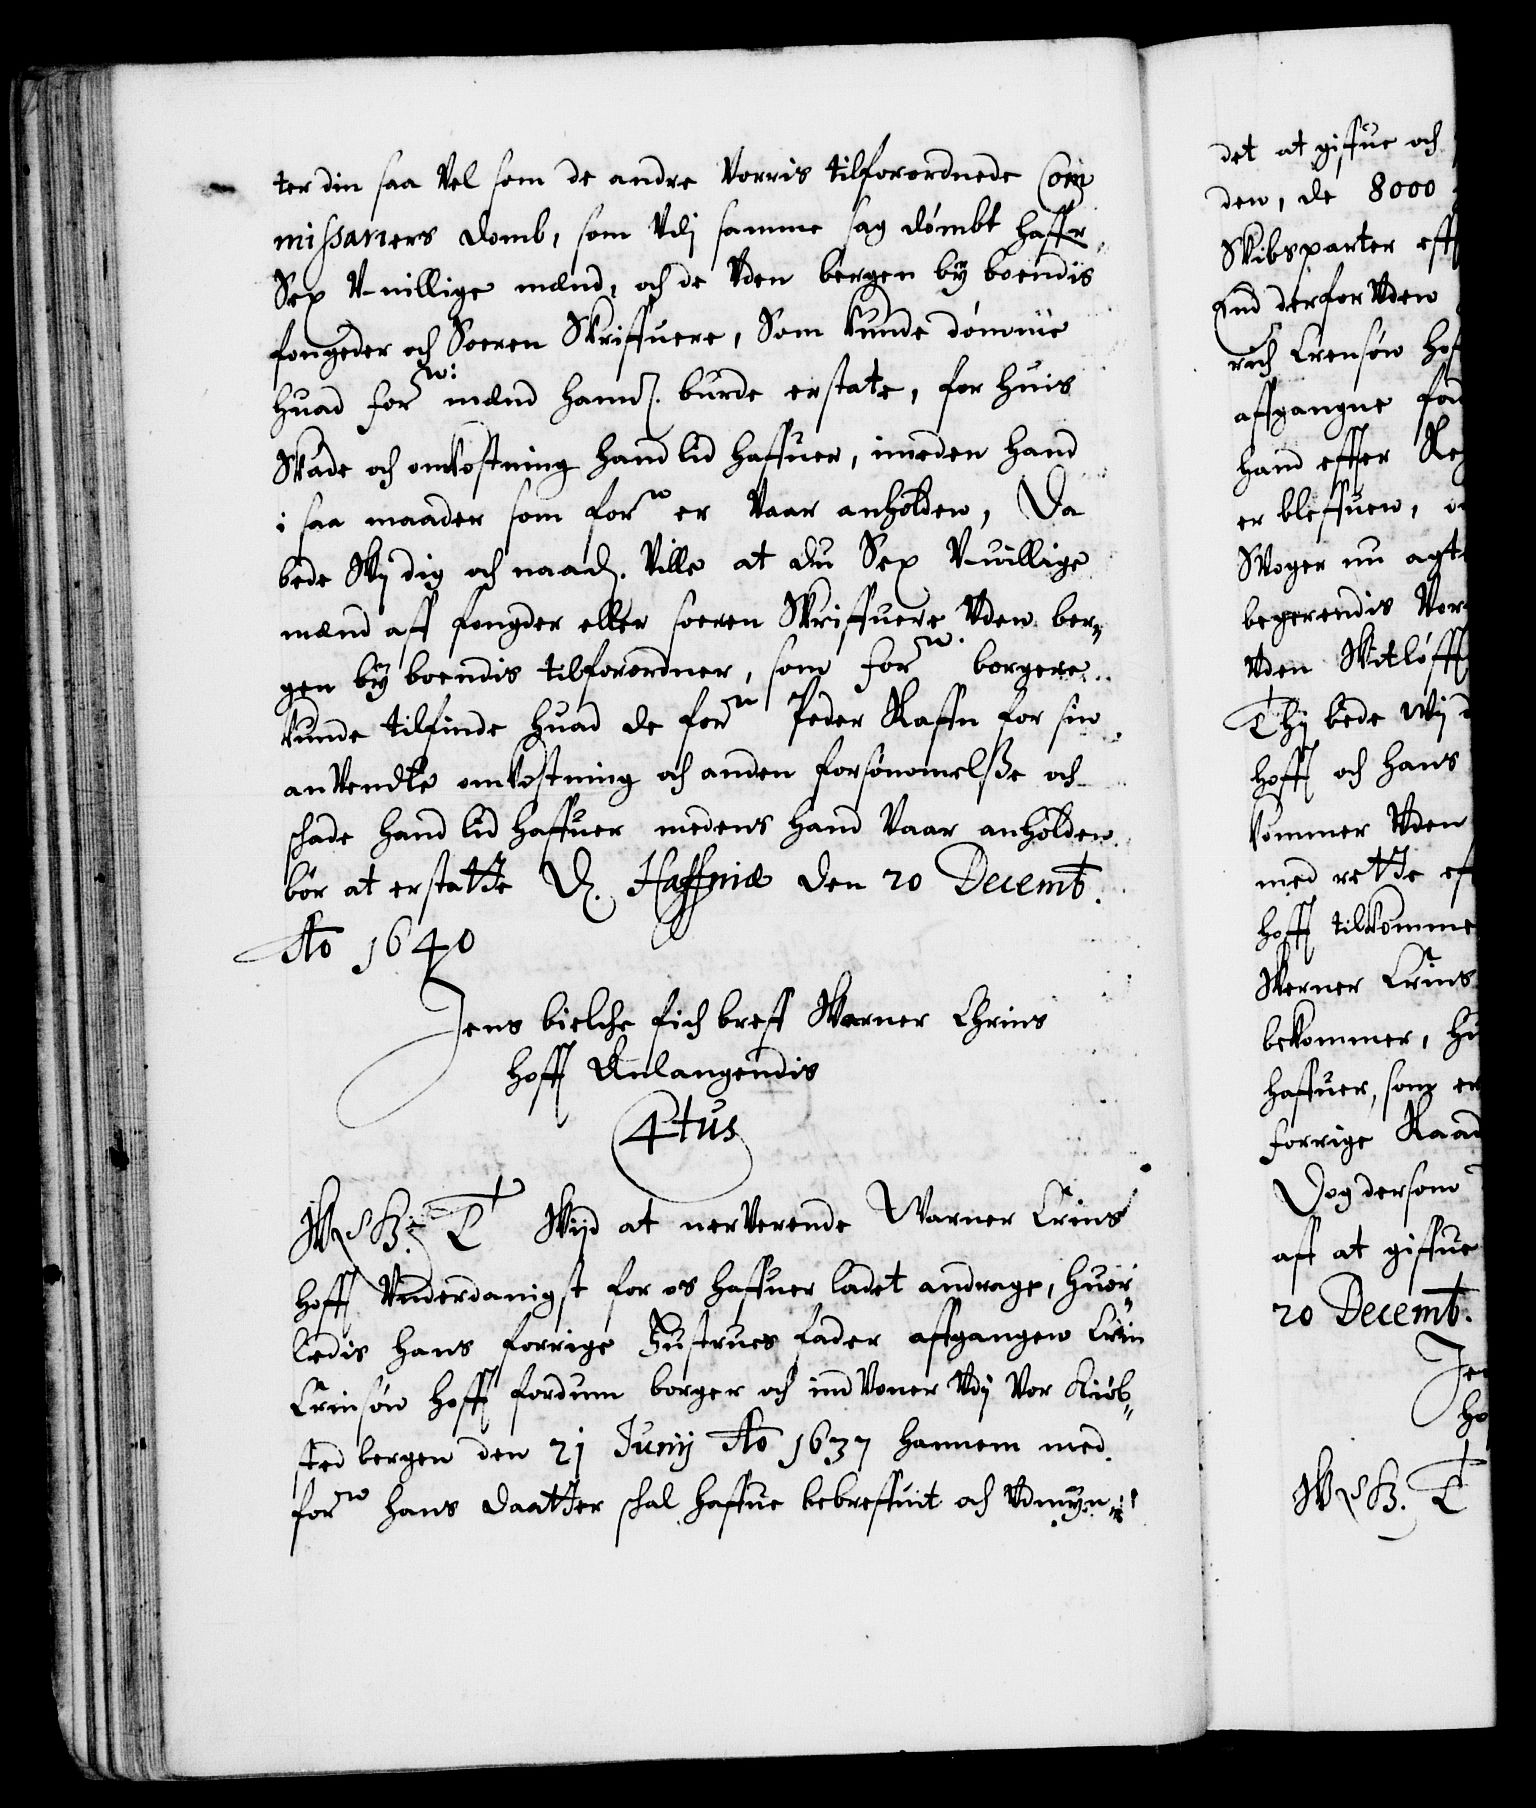 ter din saa Vel som de andre Vorris tilforordnede Com
missariers domb, som Vdj samme sag dømbt haffr
Sex V-uillige mænd, och de Vden bergen bÿ boendis
fougeder och Soeren Skriffuere, Som kunde dømme
huad forn: mænd hannd. burde erstate, for huis
Skade och omkostning hand lid haffuer, imeden hand
i saa maader som forn er Vaar anholden, Da
bede Wij dig och naad. Ville at du Sex V-uillige
mænd aff fougder eller soeren Skriffuere Vden ber„
gen bÿ boendis tilforordner, som forn. borgere
kunde tilfinde huad de forn Peder Raffn for sin
anVendte omkostning och anden forsømmelsse och
schade hand lid haffuer medens hand Vaar anholden
bør at erstatte D. Haffniæ den 20 Decemb.
Ao 1640
Jens bielche fich breff Warner Chrins
hoff Anlangendis
4tus
W S G. T Wijd at nerVerende Warner Crins
hoff Vnderdanigst for os haffuer ladet andrage, huor„
ledis hans forrige Hustrues fader affgangen Crin
Crinsøn hoff fordum borger och indVoner Vdj Vor Kiøb„
sted bergen den 21 Junij Ao 1637 hannem med
forn hans daatter schal haffue bebreffuit och Vdmÿn„
det at giffue och
den, de 8000
Skibsparter eff
End derfor Vden
rich Crensøn hof
affgangne fad
hand effter Reg
er bleffuen, o
Swoger nu agt
begerendis Vor
Vden Witløff
Thj bede Wij d
hoff och hans
kommer Vden
med rette ef
hoff tilkomme
Werner Crins
bekommer, hu
haffuer, som er
forrige Raad
Dog dersom
aff at giffue
20 Decemb.
Jen
ho
W S G. T